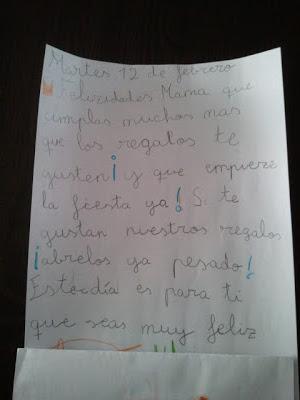 Martes 12 de febrero
Felicidades Mama que
cumplas muchos mas
que los regalos te
gusten ¡y que empieze
la fiesta ya! Si te
gustan nuestros regalos
¡abrelos ya pesado!
Este día es para ti
que seas muy feliz